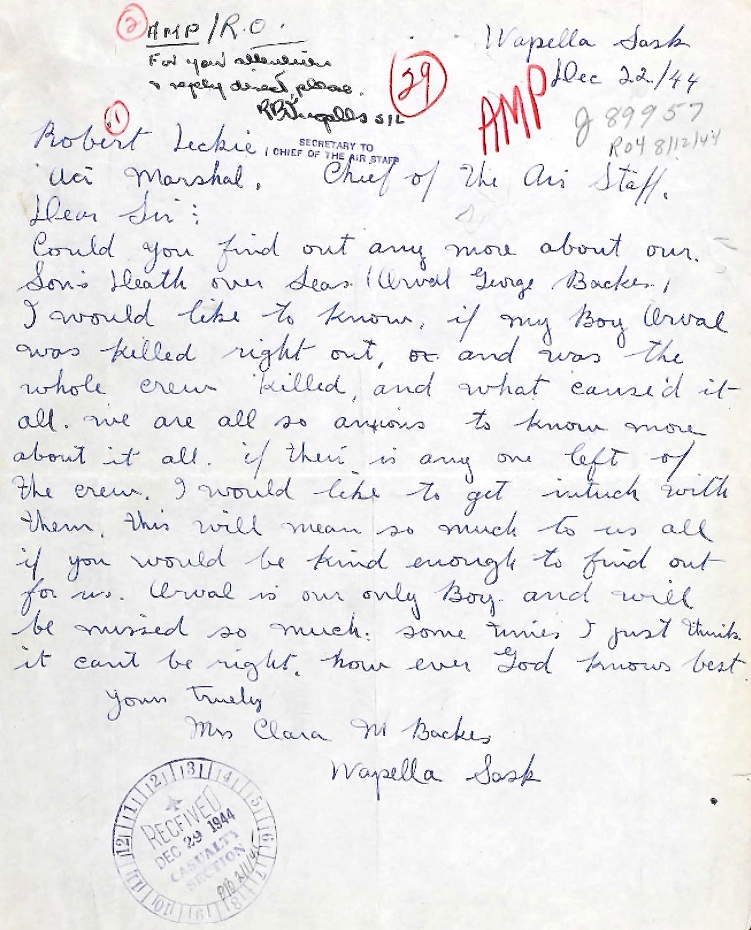 ② AMP/R.O.
For your attention
& reply direct, please.
S/L
29
AMP
Wapella Sask
Dec 22/44
J 89957
R04 8/12/44
①
Robert Leckie,
SECRETARY TO
CHIEF OF THE AIR STAFF
Air Marshal, Chief of the Air Staff.
Dear Sir:
Could you find out any more about our.
Son's Death over Seas. (Orval George Backes.)
I would like to know, if my Boy Orval
was killed right out, or and was the
whole crew killed, and what caused it
all. we are all so anxious to know more
about it all. if their is any one left of
the crew. I would like to get intuch with
them, this will mean so much to us all
if you would be kind enough to find out
for us. Orval is our only Boy. and will
be missed so much. some times I just think
it can't be right, how ever God knows best
Yours truely
Mrs Clara M Backes
Wapella Sask
RECEIVED
DEC 29 1944
CASUALTY
SECTION